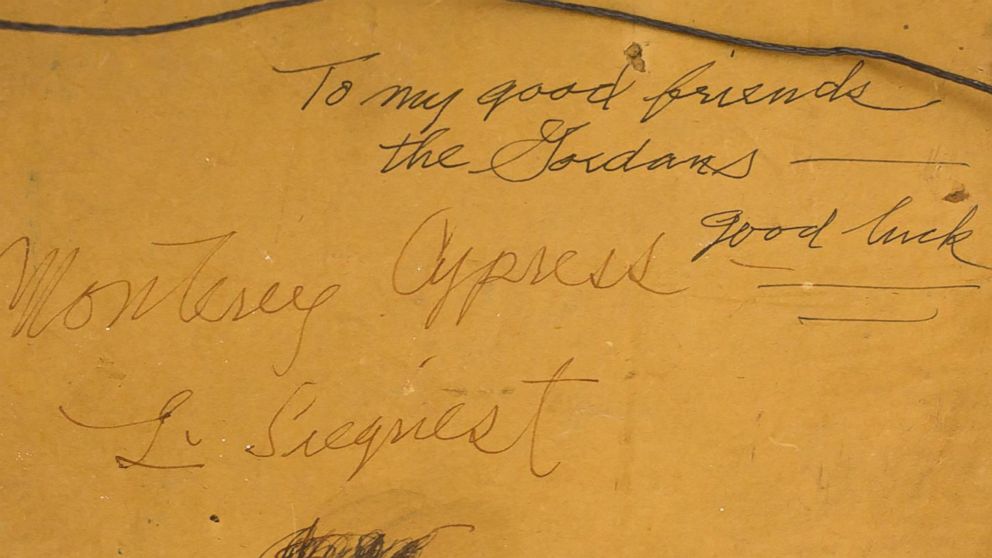 To my good friends
the Gordans
good luck
Monterey Cypress
L. Siegriest